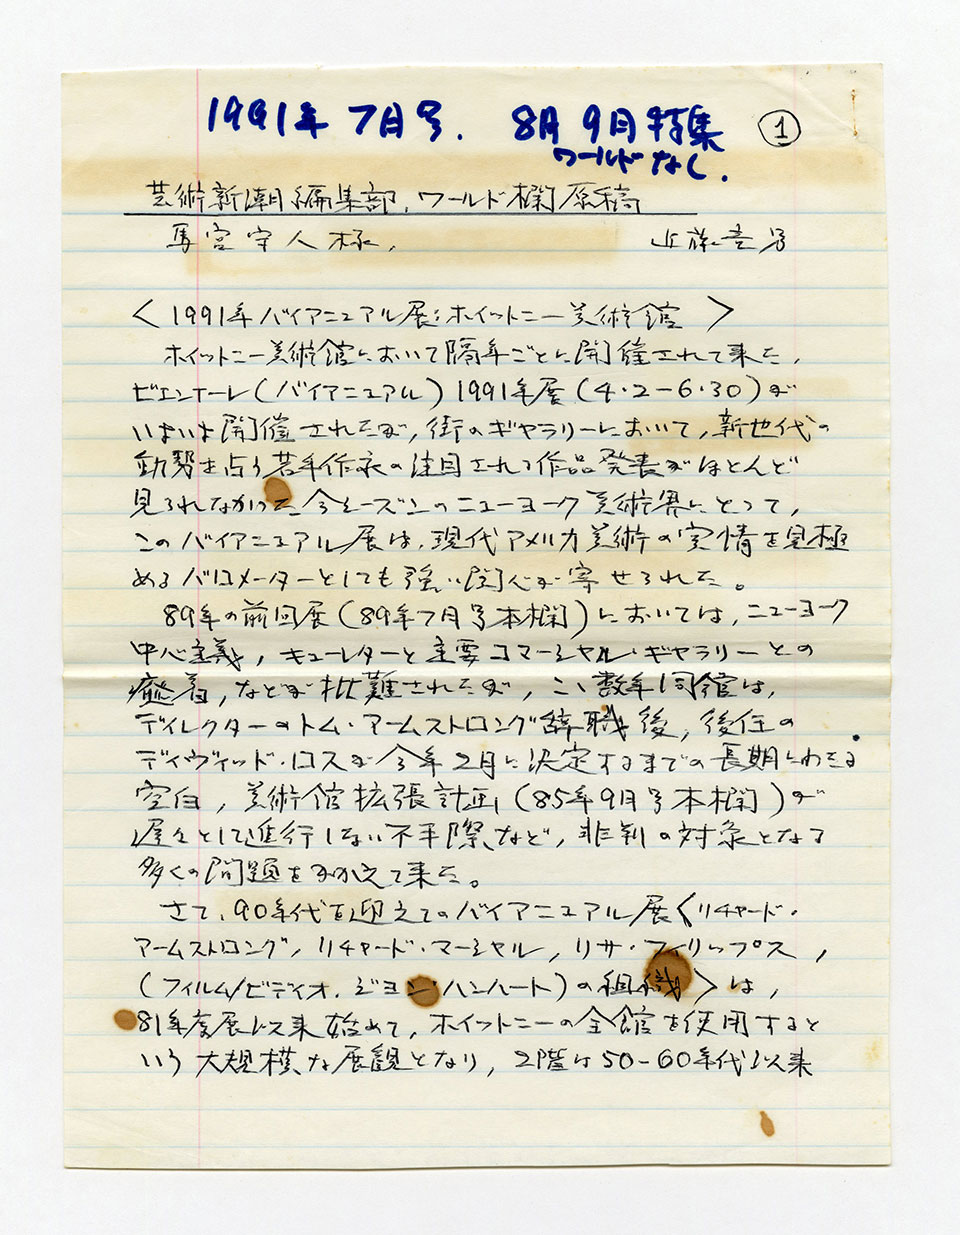 1991年 7月号. 8月 9月特集
ワールドなし.
1
芸術新潮編集部, ワールド欄原稿
馬宮守人様,
近藤竜男
〈1991年バイアニュアル展:ホイットニー美術館〉
ホイットニー美術館において隔年ごとに開催されて来た,
ビエンナーレ(バイアニュアル)1991年展(4・2-6・30)が
いよいよ開催されたが, 街のギャラリーにおいて, 新世代の
動勢を占う若手作家の注目される作品発表がほとんど
見られなかった今シーズンのニューヨーク美術界にとって,
このバイアニュアル展は, 現代アメリカ美術の実情を見極
めるバロメーターとしても強い関心が寄せられた。
89年の前回展(89年7月号本欄)においては, ニューヨーク
中心主義, キューレターと主要コマーシャル・ギャラリーとの
癒着, などが批難されたが, ここ数年同館は,
ディレクターのトム・アームストロング辞職後, 後任の
デイヴィッド・ロスが今年2月に決定するまでの長期にわたる
空白, 美術館拡張計画(85年9月号本欄)が
遅々として進行しない不手際など, 非判の対象となる
多くの問題をかかえて来た。
さて, 90年代を迎えてのバイアニュアル展〈リチャード・
アームストロング, リチャード・マーシャル, リサ・フィリップス,
(フィルム/ビディオ, ジョン・ハンハート)の組織〉は,
81年度展以来始めて, ホイットニーの全館を使用すると
いう大規模な展観となり, 2階は50-60年代以来